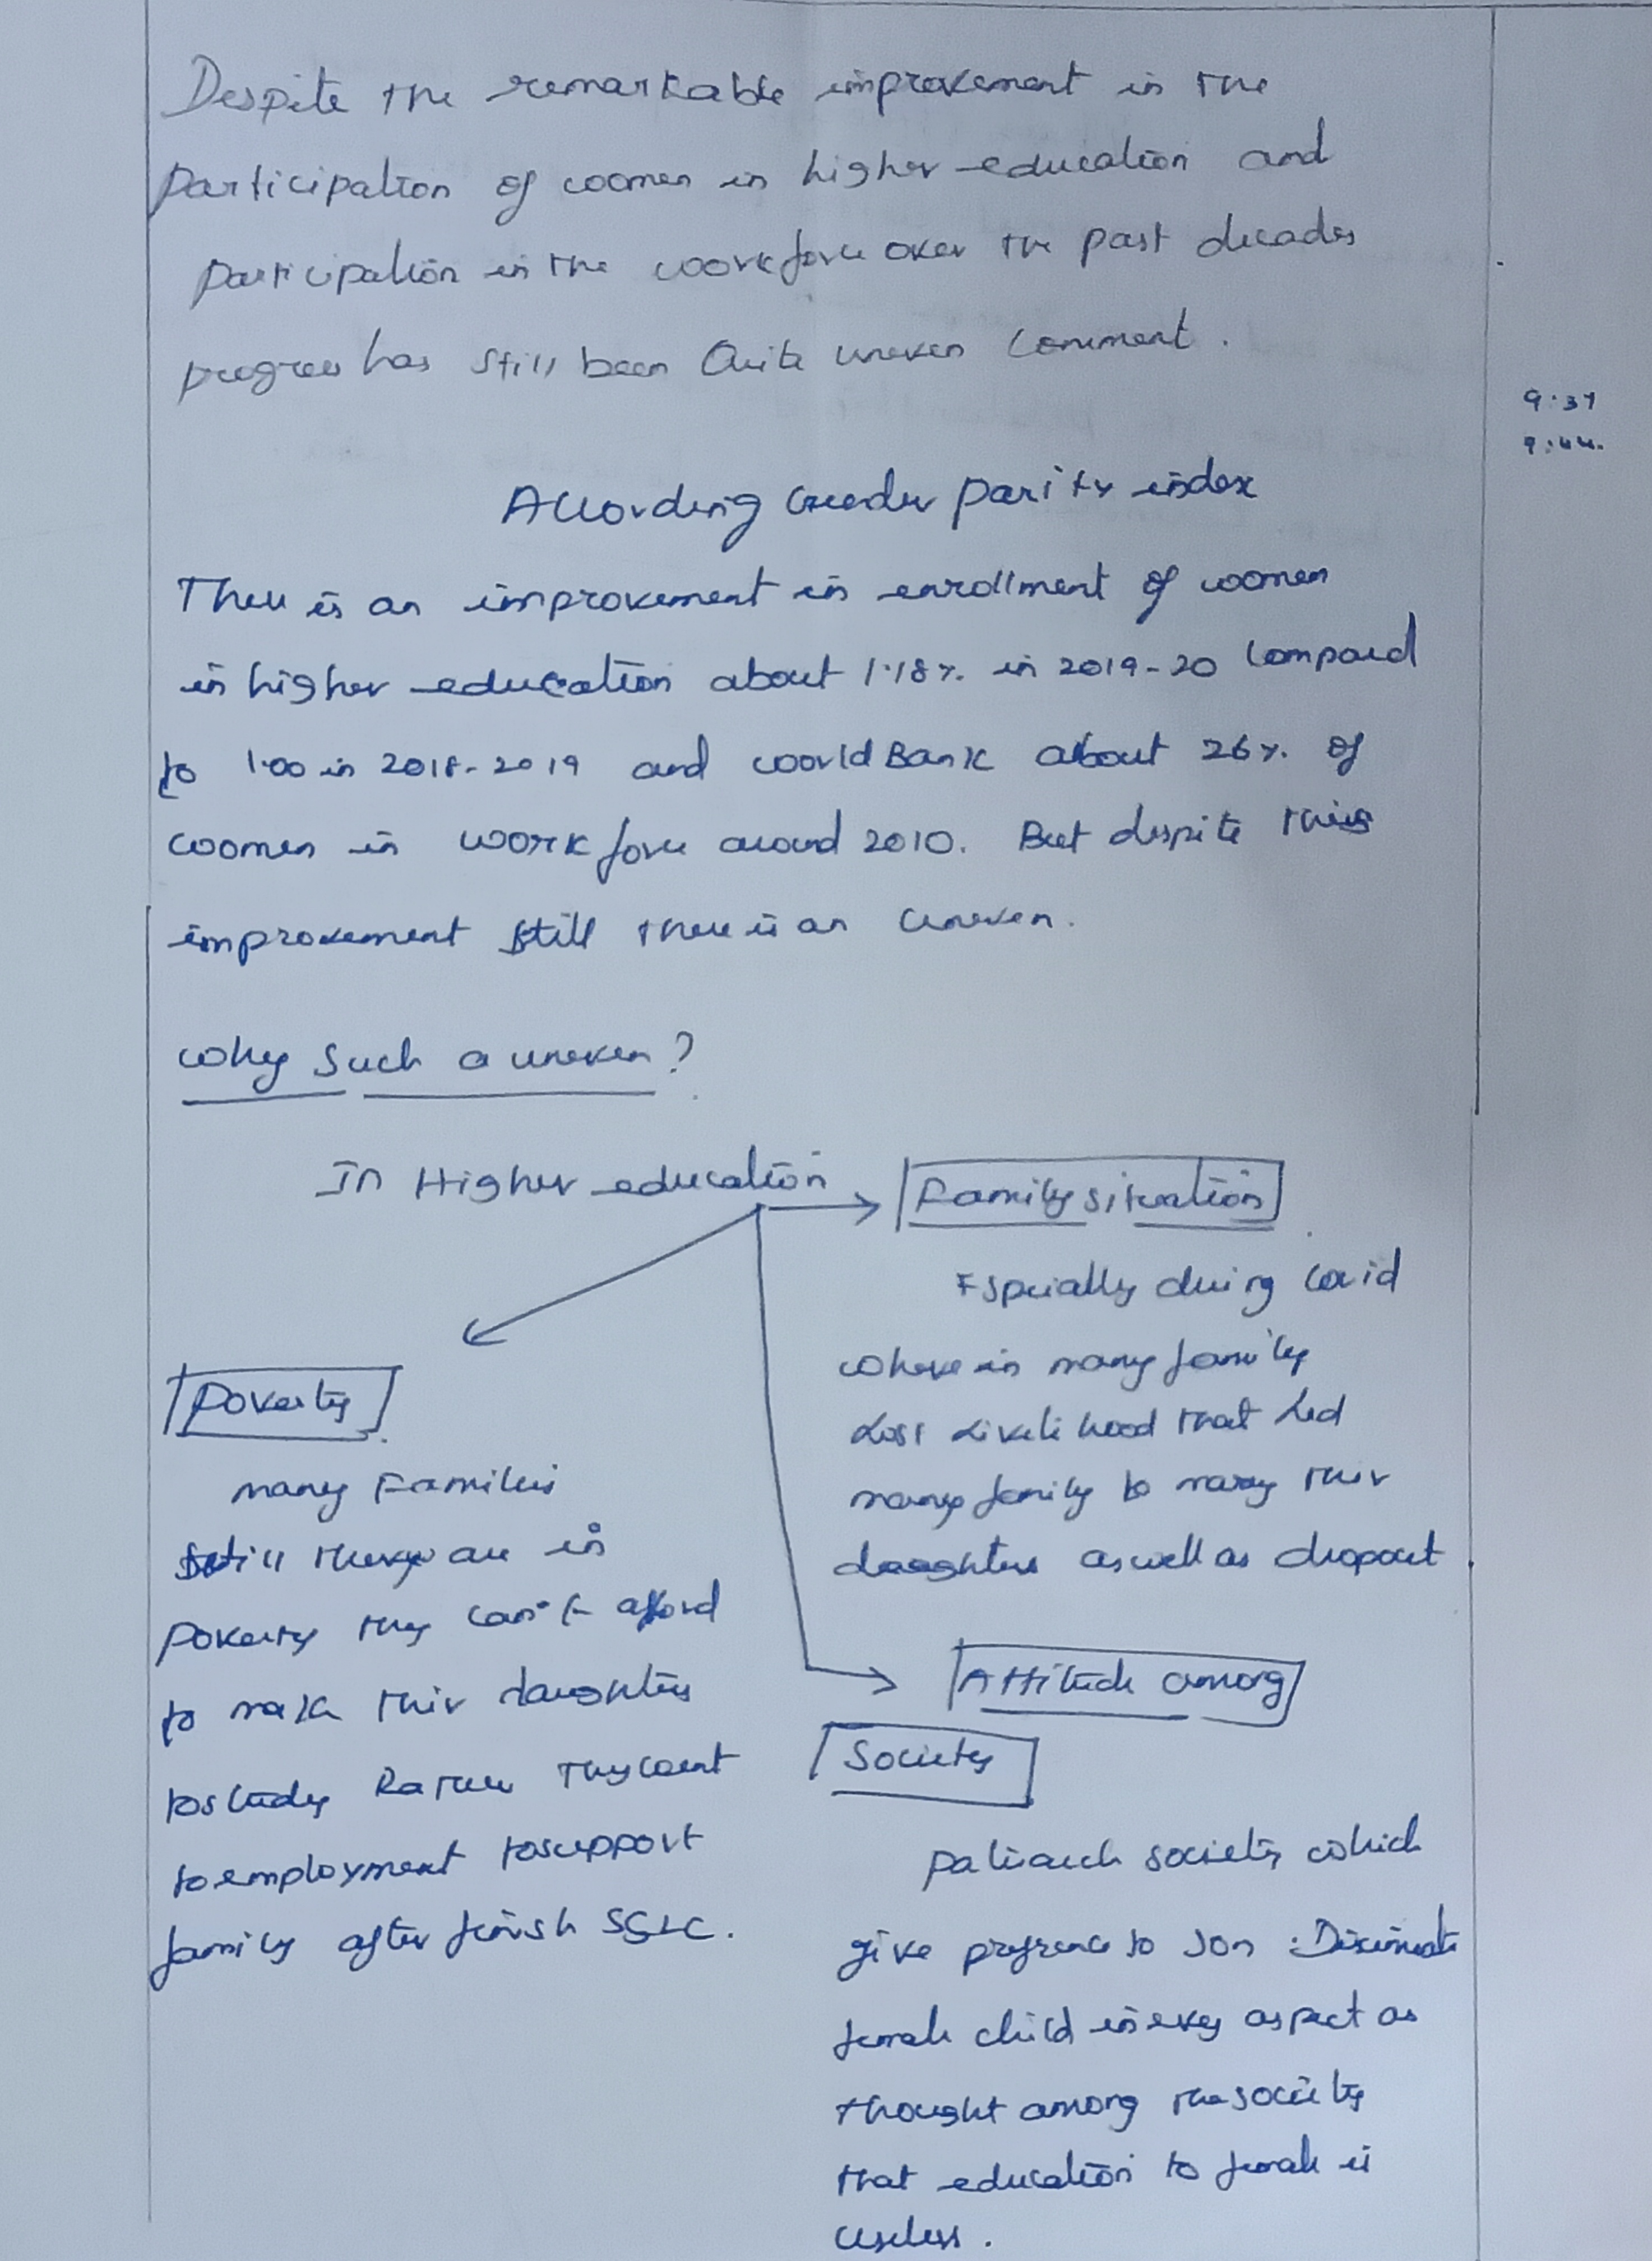 Despite the remarkable improvement in the
participation of women in higher education and
participation in the workforce over the past decades
progress has still been Quite uneven Comment.
9:37
9:44.
According Gender parity index
There is an improvement in enrollment of women
in higher education about 1.18%. in 2019-20 Compared
to 1.00 in 2018-2019 and world Bank about 26%. of
women in workforce around 2010. But despite this
improvement still there is an uneven.
why such a uneven?
In Higher education
Family situation
Especially during Covid
where in many family
Lost Livelihood that Led
many family to marry their
daughters as well as dropout.
Poverty
many Families
still they are in
poverty they can't afford
to make their daughters
to study Rather They want
to employment to support
family after finish SSLC.
Attitude among
Society
patriarch society which
give prefrence to son : Discriminate
female child in every aspect as
thought among the society
that education to female is
useless.